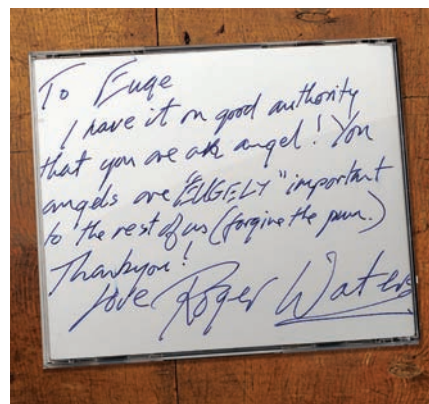 To Euge
I have it on good authority
that you are an angel! You
angels are "EUGELY" important
to the rest of us (forgive the pun.)
Thankyou!
Love Roger Waters